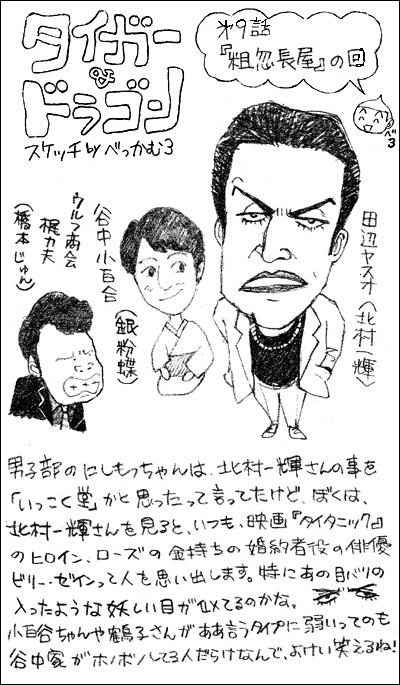 タイガー
&
ドラゴン
スケッチ by べっかむ3
第9話
『粗忽長屋』の回
べ3
田辺ヤスオ〈北村一輝〉
谷中小百合
(銀粉蝶)
ウルフ商会
梶力夫
(橋本じゅん)
男子部のにしもっちゃんは、北村一輝さんの事を
「いっこく堂」かと思ったって言ってたけど、ぼくは、
北村一輝さんを見ると、いつも、映画『タイタニック』
のヒロイン、ローズの金持ちの婚約者役の俳優
ビリー・ゼインって人を思い出します。特にあの目バリの
入ったような妖しい目が似てるのかな。
小百合ちゃんや鶴子さんがああ言うタイプに弱いってのも
谷中家がホノボノしてる人だらけなんで、よけい笑えるね!